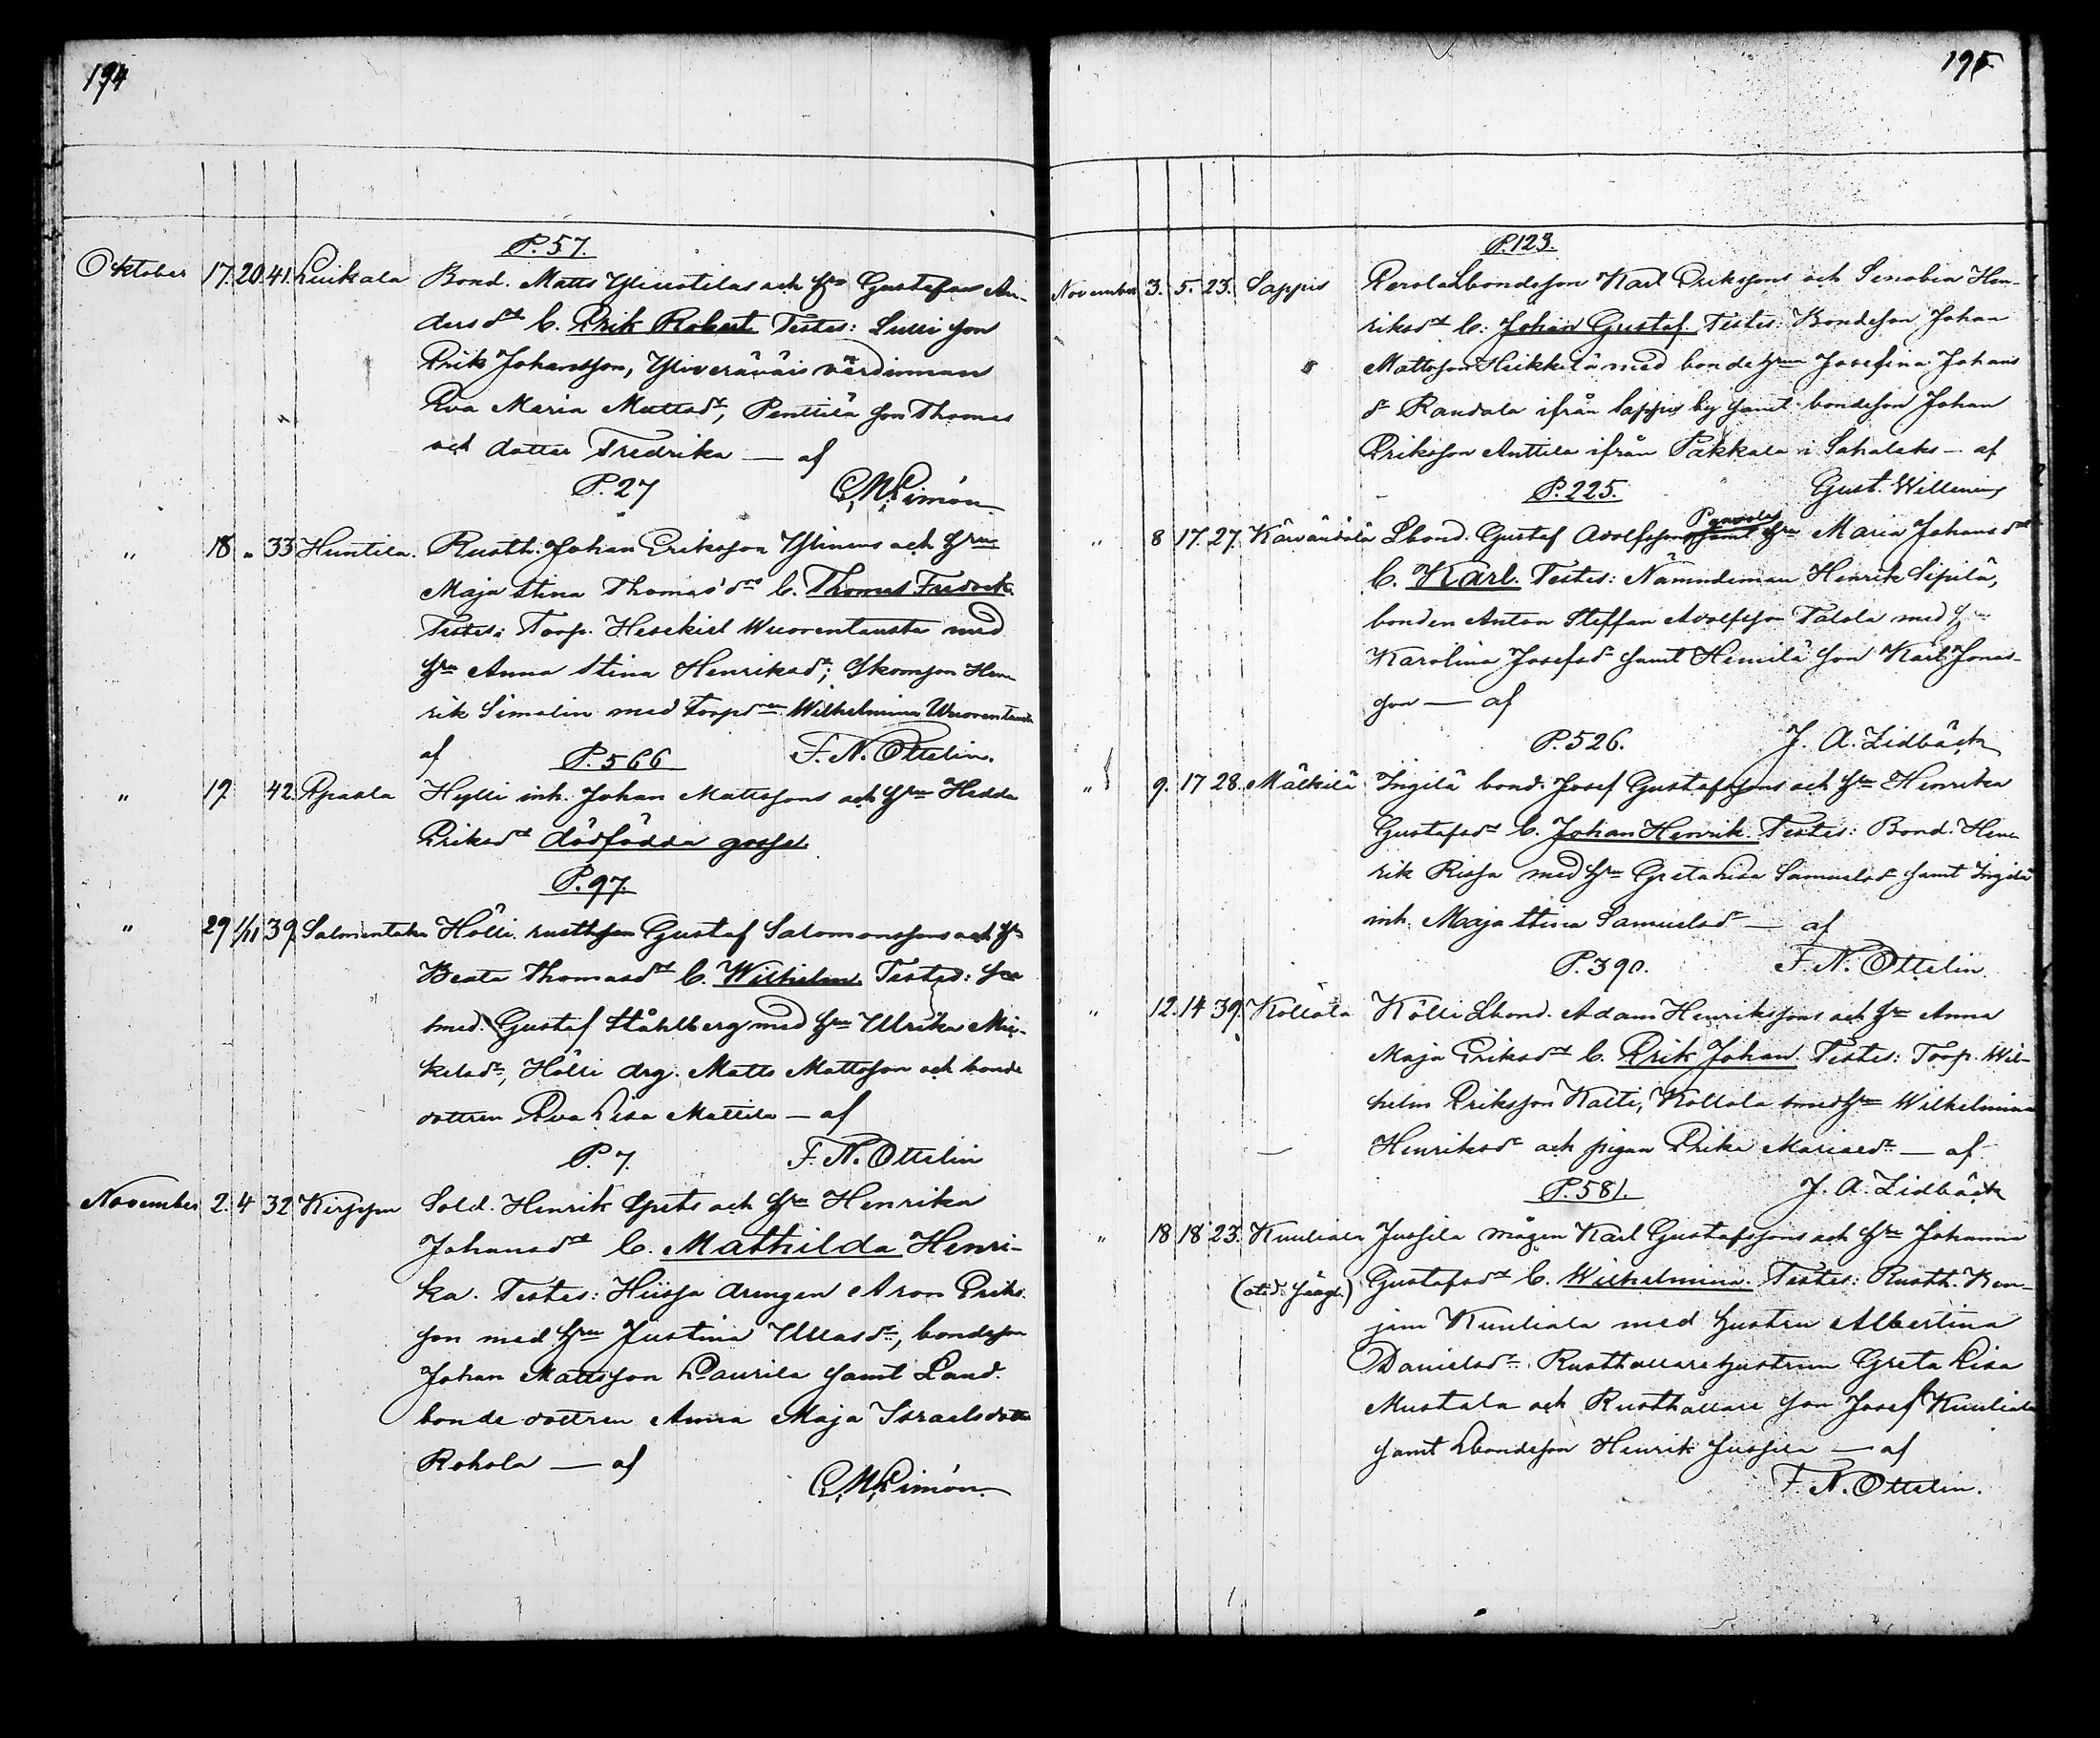 194
P. 57.
Oktober 17. 20. 41. Luikala Bond. Matts och Gustafvas An-
ders dr b. Erik Robert. Testes: son
Erik Johansson, värdinnan
Eva Maria Mattsdr, Penttilä son Thomas
och dotter Fredrika — af
P. 27
" 18 " 33 Huntila. Rusth. Johan Eriksson och hru
Maja Stina Thomas'dr b. Thomas Fredrik.
Testes: Torp. Hesekiel Wuorentausta med
hru Anna Stina Henriksdr; Hen-
rik Simolin med Wilhelmina Wuorentausta
af P. 566 F. N. Ottelin.
" 19 42 Hylli inh. Johan Mattssons och hru Hedda
Eriksdr dödfödda gosse.
P. 97.
" 29 1/11 39. Salmentaka Hölli Gustaf Salomonssons och hr
Beata Thomasdr b. Wilhelm. Testes:
smed. Gustaf Ståhlberg med hru Ulrika Mi-
kelsdr, Hölli drg. Matts Mattsson och bonde
dottren Eva Lisa Mattila — af
P. 7. F. N. Ottelin
November 2. 4 32 Sold. Henrik Spets och hru Henrika
Johansdr b. Mathilda Henri-
ka. Testes: drengen Aron Eriks-
son med hru Justina dr, bondeson
Johan Mattsson Laurila samt Land-
bonde dottren Anna Maja Israelsdotter
Rohola — af
195
P. 123.
November 3. 5. 23. Sappis Lbondeson Karl Erikssons och Senobia Hen-
riksdr b: Johan Gustaf. Testes: Bondeson Johan
Mattsson Heikkilä med bondehrun Josefina Johans
dr Randala ifrån Sappis by samt bondeson Johan
Eriksson Anttila ifrån Pakkala i Sahalaks — af
P. 225. Gust. Willenius
" 8 17. 27. Lbond. Gustaf Adolfssons samt hru Maria Johansdr
b. Karl. Testes: Nämndeman Henrik Sipilä,
bonden Anton Steffan Adolfsson Talola med
Karolina Josefsdr samt Hemilä son Karl Jonas-
son — af
P. 526. J. A. Lidbäck
" 9. 17 28. Mälkilä Ingilä bond. Josef Gustafssons och hru Henrika
Gustafsdr b. Johan Henrik. Testes: Bond. Hen-
rik Rissa med hru Greta Lisa Samuelsdr samt Ingilä
inh. Maja Stina Samuelsdr — af
P. 390. F. N. Ottelin.
" 12. 14 39. Kollola Kölli Lbond. Adam Henrikssons och hru Anna
Maja Eriksdr b. Erik Johan. Testes: Torp. Wil-
helm Eriksson Kalti, Kollola smedhru Wilhelmina
Henriksdr och pigan Erika Mariaedr — af
P. 581. J. A. Lidbäck
" 18 18 23. Kuuliala Jussila mågen Karl Gustafssons och hru Johanna
Gustafsdr b. Wilhelmina. Testes: Rusth. Ken-
jam Kuuliala med hustru Albertina
Danielsdr. Rusthållarehustrun Greta Lisa
Mustala och Rusthållare son Josef Kuuliala
samt Lbondeson Henrik Jussila — af
F. N. Ottelin.